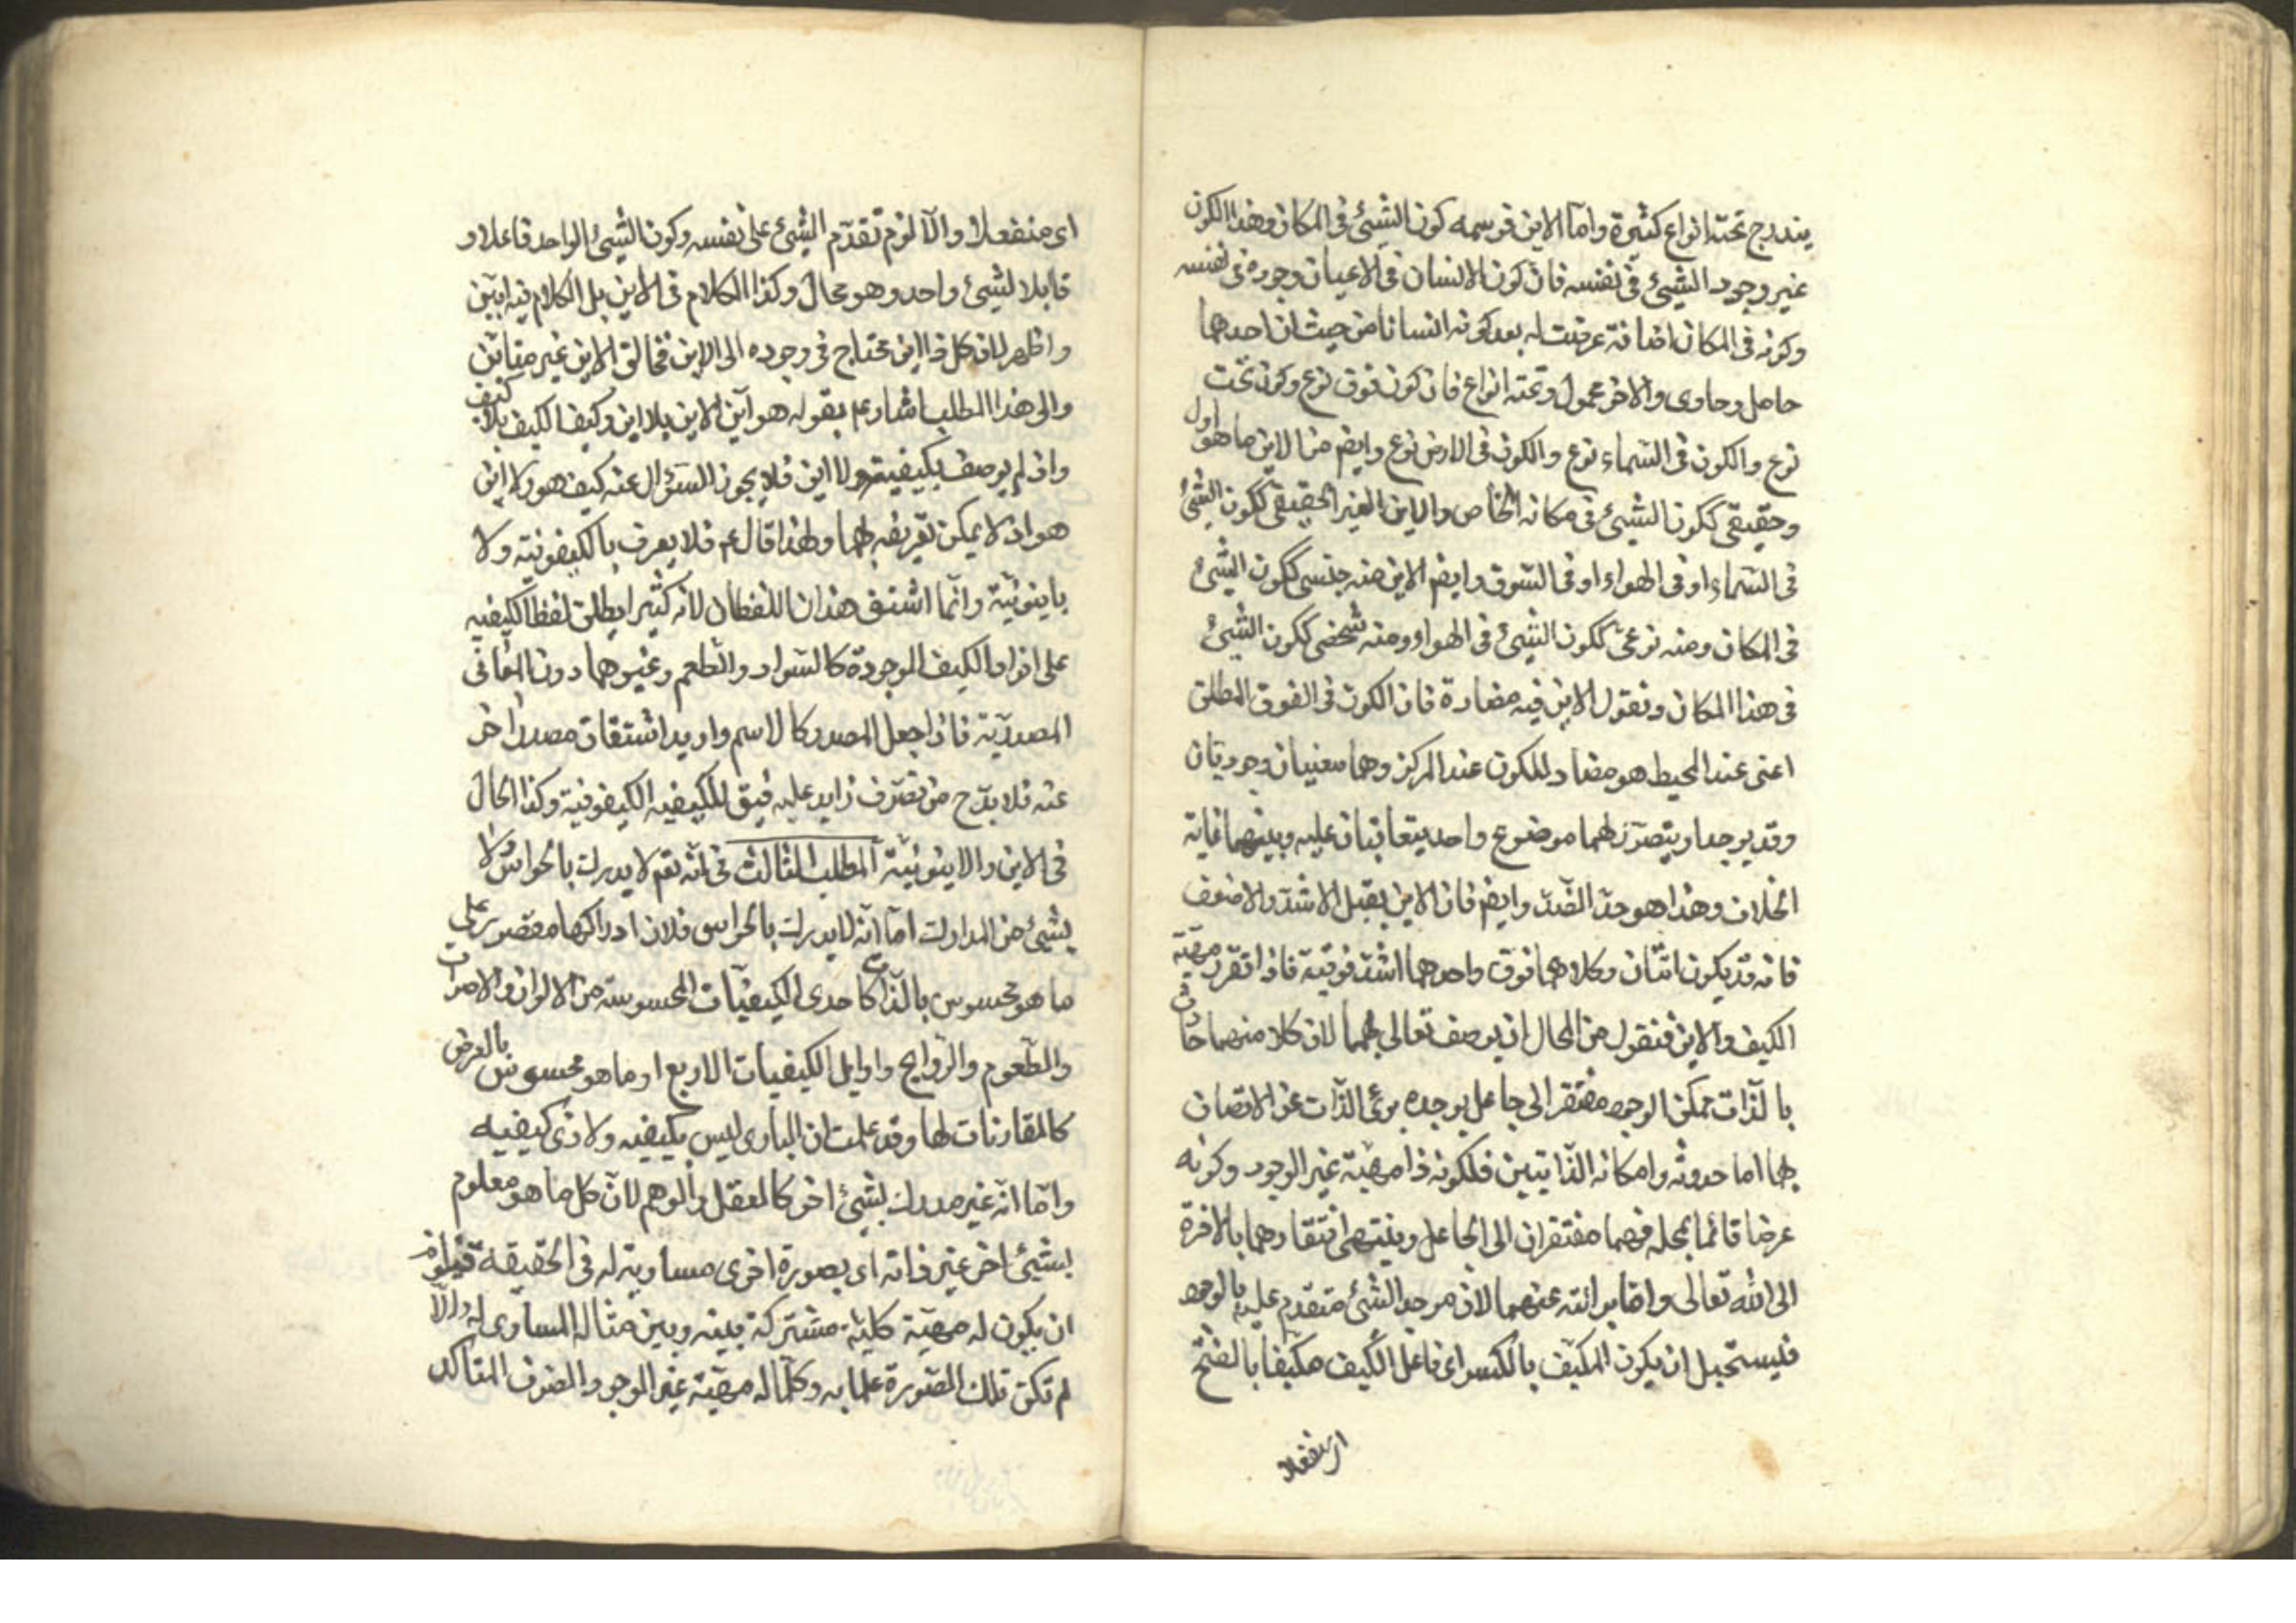 يندرج تحته انواع كثيرة واما الاين فرسمه كون الشيئ فى المكان وهذا الكون
غير وجود الشيئ فى نفسه فان كون الانسان فى الاعيان وجوده فى نفسه
وكونه فى المكان اضافة عرضت له بعد كونه انسانا من حيث ان احدهما
حامل وحاوى والاخر محمول وتحته انواع فان كون فوق نوع وكون تحت
نوع والكون فى السماء نوع والكون فى الارض نوع وايضم من الاين ما هو اول
وحقيقى ككون الشيئ فى مكانه الخاص والاين الغير الحقيقى ككون الشيئ
فى السماء او فى الهواء او فى السوق وايضم الاين منه جنسى ككون الشيئ
فى المكان ومنه نوعى ككون الشيئ فى الهواء ومنه شخصى ككون الشيئ
فى هذا المكان ونقول الاين فيه مضادة فان الكون فى الفوق المطلق
اعنى عند المحيط هو مضاد للكون عند المركز وهما معنيان وجوديان
وقد يوجد او يتصور لهما موضوع واحد يتعاقبان عليه وبينهما غاية
الخلاف وهذا هو حد الضد وايضم فان الاين يقبل الاشد والاضعف
فانه قد يكون اثنان وكلاهما فوق واحدهما اشد فوقية فاذا تقرر مهية
الكيف والاين فنقول من المحال ان يوصف تعالى بهما لان كلا منهما حادث
بالذات ممكن الوجود مفتقر الى جاعل يوجده برئ الذات عن الاتصاف
بها اما حدوثه وامكانه الذاتيين فلكونه ذا مهية غير الوجود وكونه
عرضا قائما بمحله فهما مفتقران الى الجاعل وينتهى افتقارهما بالاخرة
الى الله تعالى واما برائته عنهما لان موجد الشيئ متقدم عليه بالوجود
فيستحيل ان يكون المكيف بالكسر اى فاعل الكيف مكيفا بالفتح
اى منفعلا
اى منفعلا والا لزم تقدم الشيئ على نفسه وكون الشيئ الواحد فاعلا و
قابلا لشيئ واحد وهو محال وكذا الكلام فى الاين بل الكلام فيه ابين
واظهر لان كل ذا اين محتاج فى وجوده الى الاين فخالق الاين غير متاين
والى هذا المطلب اشار عم بقوله هو اين الاين بلا اين وكيف الكيف بلا كيف
واذ لم يوصف بكيفية ولا اين فلا يجوز السؤال عنه كيف هو ولا اين
هو اذ لا يمكن تعريفه بهما ولهذا قال عم فلا يعرف بالكيفونية ولا
باينونية وانما اشتق هذان اللفظان لانه كثيرا يطلق لفظ الكيفيه
على افراد الكيف الموجودة كالسواد والطعم وغيرهما دون المعانى
المصدرية فاذا جعل المصدر كالاسم واريد اشتقاق مصدر اخر
عنه فلا بد ح من تصرف زايد عليه فيق للكيفيه الكيفونية وكذا الحال
فى الاين والاينونية المطلب الثالث فى انه تعم لا يدرك بالحواس ولا
بشيئ من المدارك اما انه لا يدرك بالحواس فلان ادراكها مقصور على
ما هو محسوس بالذات كاحدى الكيفيات المحسوسة من الالوان والاصوات
والطعوم والروايح واوايل الكيفيات الاربع او ما هو محسوس بالعرض
كالمقارنات لها وقد علمت ان البارى ليس بكيفيه ولا ذى كيفيه
واما انه غير مدرك بشيئ اخر كالعقل والوهم لان كل ما هو معلوم
بشيئ اخر غير ذاته اى بصورة اخرى مساوية له فى الحقيقة فيلزم
ان يكون له مهية كلية مشتركة بينه وبين مثاله المساوى له والا
لم تكن تلك الصورة علما به وكلما له مهية غير الوجود الصرف المتاكد